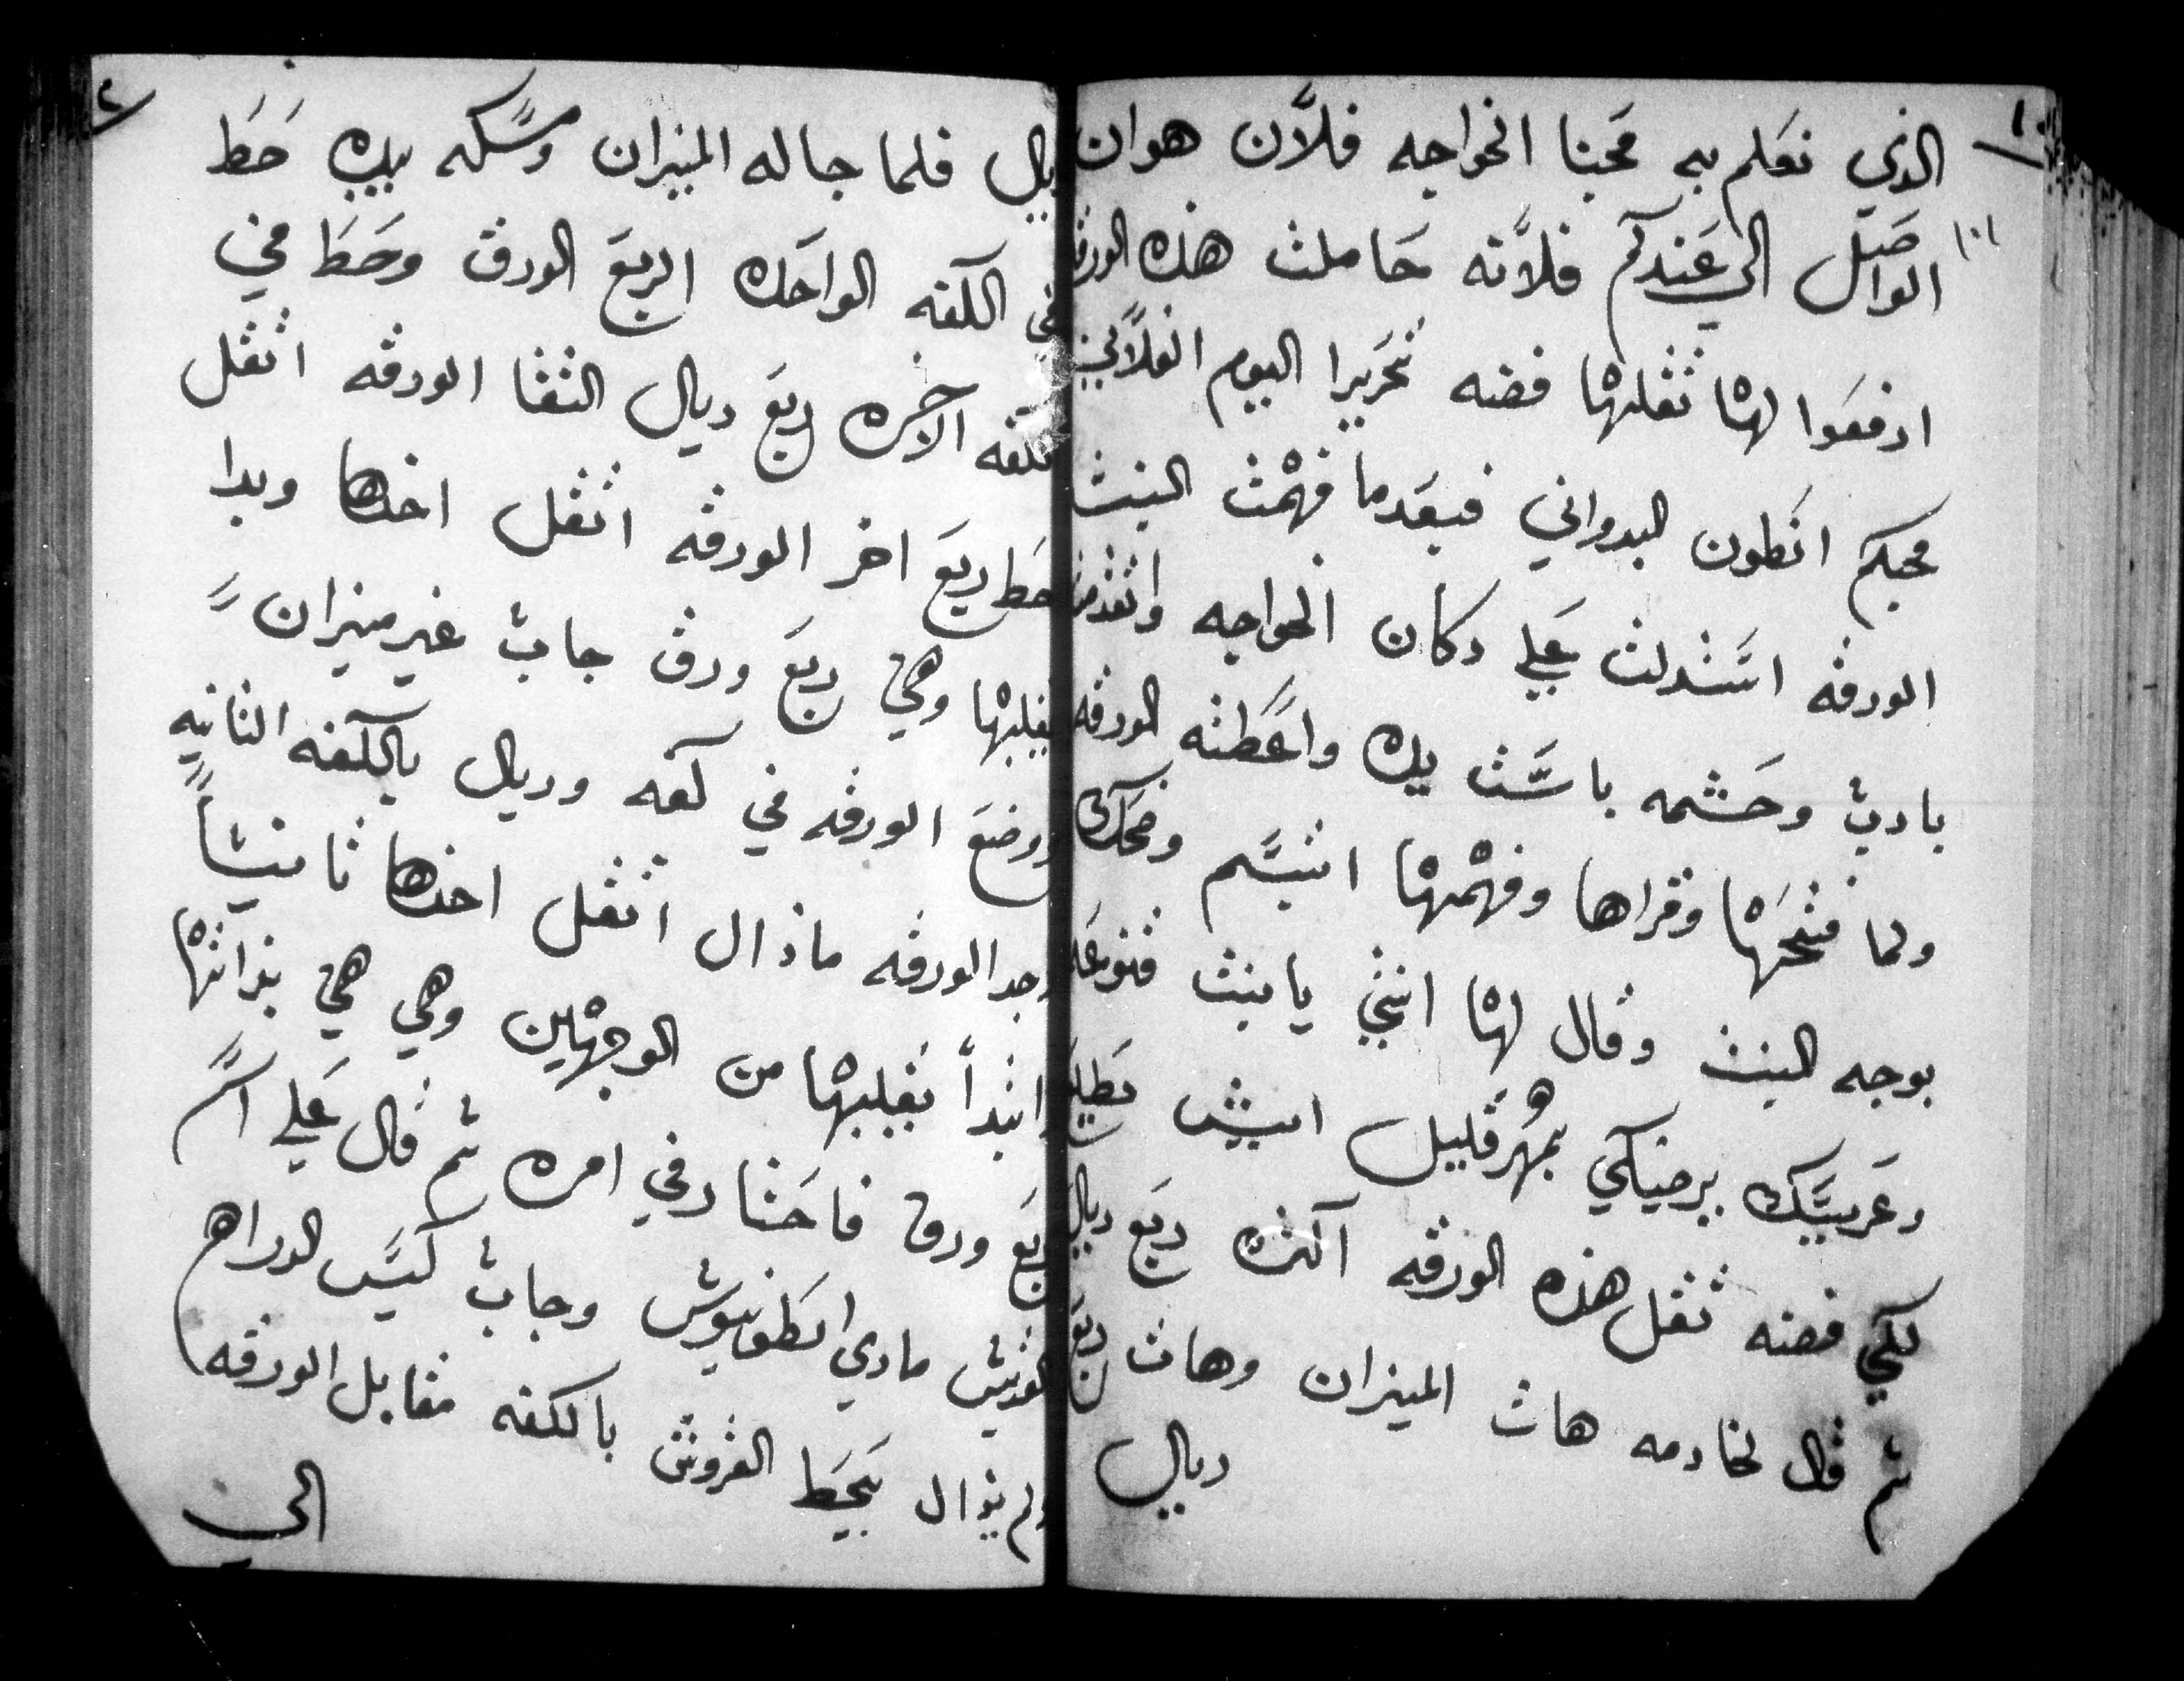 ١
الذي نعلم به محبنا الخواجه فلآن هوان
١٠١
الواصل الي عندكم فلآنه حاملت هذه الورقه
ادفعوا لها ثقلها فضه تحريرا اليوم الفلآني
محبكم انطون البدواني فبعدما فهمت البنت
الورقه استدلت علي دكان الخواجه
بادب وحشمه باست يده واعطته الورقه
ولما فتحها وقراها وفهمها اتبسم وضحك
بوجه البنت وقال لها انتي يا بنت
وعريسك برضيكي بمهر قليل ايش
لكي فضه ثقل هذه الورقه اكثره ربع ريال
ثم قال لخادمه هات الميزان وهات ربع
ريال
٢
ريال فلما جاله الميزان ومسكه بيده حط
في الكفه الواحده الربع الورق وحط في
الكفه الآخره ربع ريال التقا الورقه اتقل
حط ربع اخر الورقه اتقل اخدها وبدا
يقلبها وهي ربع ورق جاب غير ميزان
ووضع الورقه في كفه وريال بالكفه الثانيه
وجد الورقه مازال اتقل اخدها ثانيتاً
وابتدأ يقلبها من الوجهين وهي هي بذاتها
ربع ورق فاحتار في امره ثم قال علي اسم
القديس ماري انطونيوس وجاب كيس الدراهم
ولم يزال يحط القروش بالكفه مقابل الورقه
الي